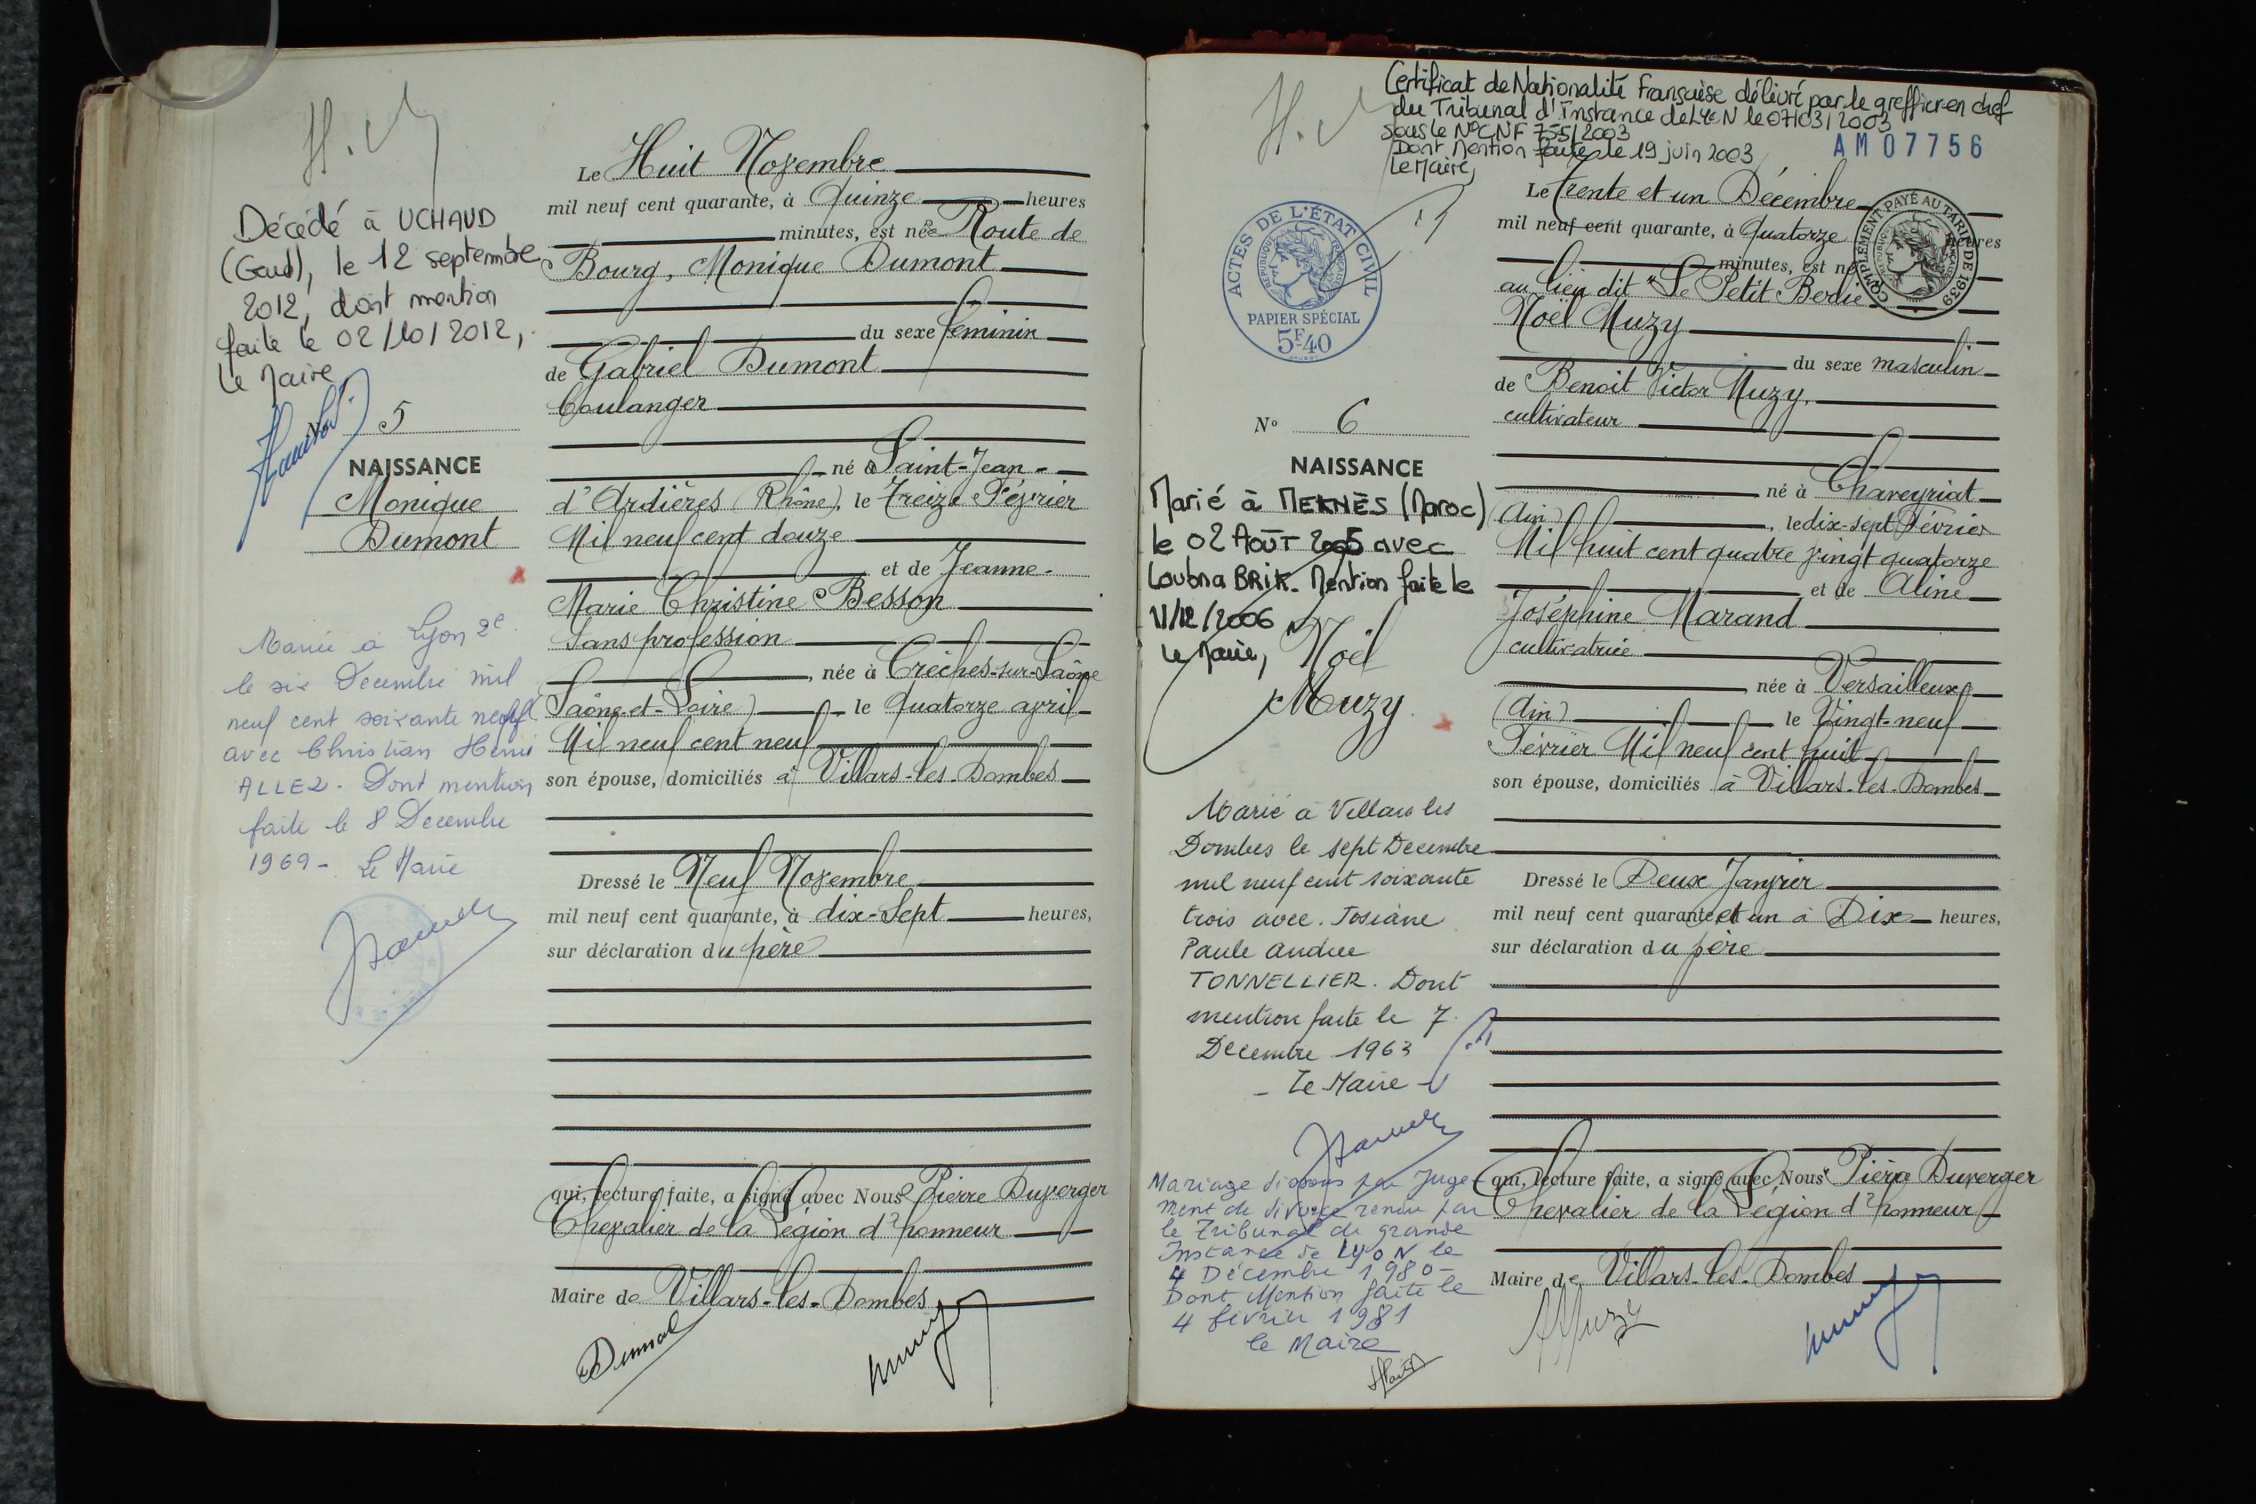 H.
Décédé à UCHAUD
(Gard), le 12 septembre
2012, dont mention
faite le 02/10/2012,
Le Maire
N° 5
NAISSANCE
Monique
Dumont
Mariée à Lyon 2e
le six Decembre mil
neuf cent soixante neuf
avec Christian Henri
ALLEZ - Dont mention
faite le 8 Decembre
1969 - Le Maire
Le Huit Novembre
mil neuf cent quarante, à Quinze heures
minutes, est née Route de
Bourg, Monique Dumont
du sexe féminin
de Gabriel Dumont
boulanger
né à Saint-Jean-
d'Ardières (Rhône), le Treize Février
Mil neuf cent douze
et de Jeanne-
Marie Christine Besson
sans profession
, née à Crèches-sur-Saône
(Saône-et-Loire) le Quatorze avril
Mil neuf cent neuf
son épouse, domiciliés à Villars-les-Dombes
Dressé le Neuf Novembre
mil neuf cent quarante, à dix-sept heures,
sur déclaration du père
qui, lecture faite, a signé avec Nous Pierre Duverger
Chevalier de la Légion d'honneur
Maire de Villars-les-Dombes
Dumont
H.
Certificat de Nationalité Française délivré par le greffier en chef
du Tribunal d'Instance de Lyon le 07/03/2003
sous le N° CNF 755/2003
Dont Mention faite le 19 juin 2003
Le Maire,
AM 07756
ACTES DE L'ÉTAT CIVIL
RÉPUBLIQUE FRANÇAISE
PAPIER SPÉCIAL
5F40
N° 6
NAISSANCE
Marié à MEKNÈS (Maroc)
le 02 AOÛT 2005 avec
Loubna BRIK. Mention faite le
11/12/2006
Le Maire,
Noël
Muzy
Marié à Villars les
Dombes le sept Decembre
mil neuf cent soixante
trois avec Josiane
Paule Andrée
TONNELLIER. Dont
mention faite le 7
Decembre 1963
- Le Maire -
Mariage dissous par Juge-
ment de divorce rendu par
le Tribunal de grande
Instance de LYON le
4 Décembre 1980-
Dont Mention faite le
4 février 1981
le Maire
Le Trente et un Décembre
mil neuf cent quarante, à Quatorze heures
minutes, est né
au lieu dit "Le Petit Berlie
Noël Muzy
COMPLÉMENT PAYÉ AU TARIF DE 1939
RÉPUBLIQUE FRANÇAISE
du sexe masculin
de Benoit Victor Muzy,
cultivateur
né à Chaveyriat
(Ain), le dix-sept Février
Mil huit cent quatre vingt quatorze
et de Aline
Joséphine Marand
cultivatrice
née à Versailleux
(Ain) le Vingt-neuf
Février Mil neuf cent huit
son épouse, domiciliés à Villars-les-Dombes
Dressé le Deux Janvier
mil neuf cent quarante et un à Dix heures,
sur déclaration du père
qui, lecture faite, a signé avec Nous Pierre Duverger
Chevalier de la Légion d'honneur
Maire de Villars-les-Dombes
Muzy